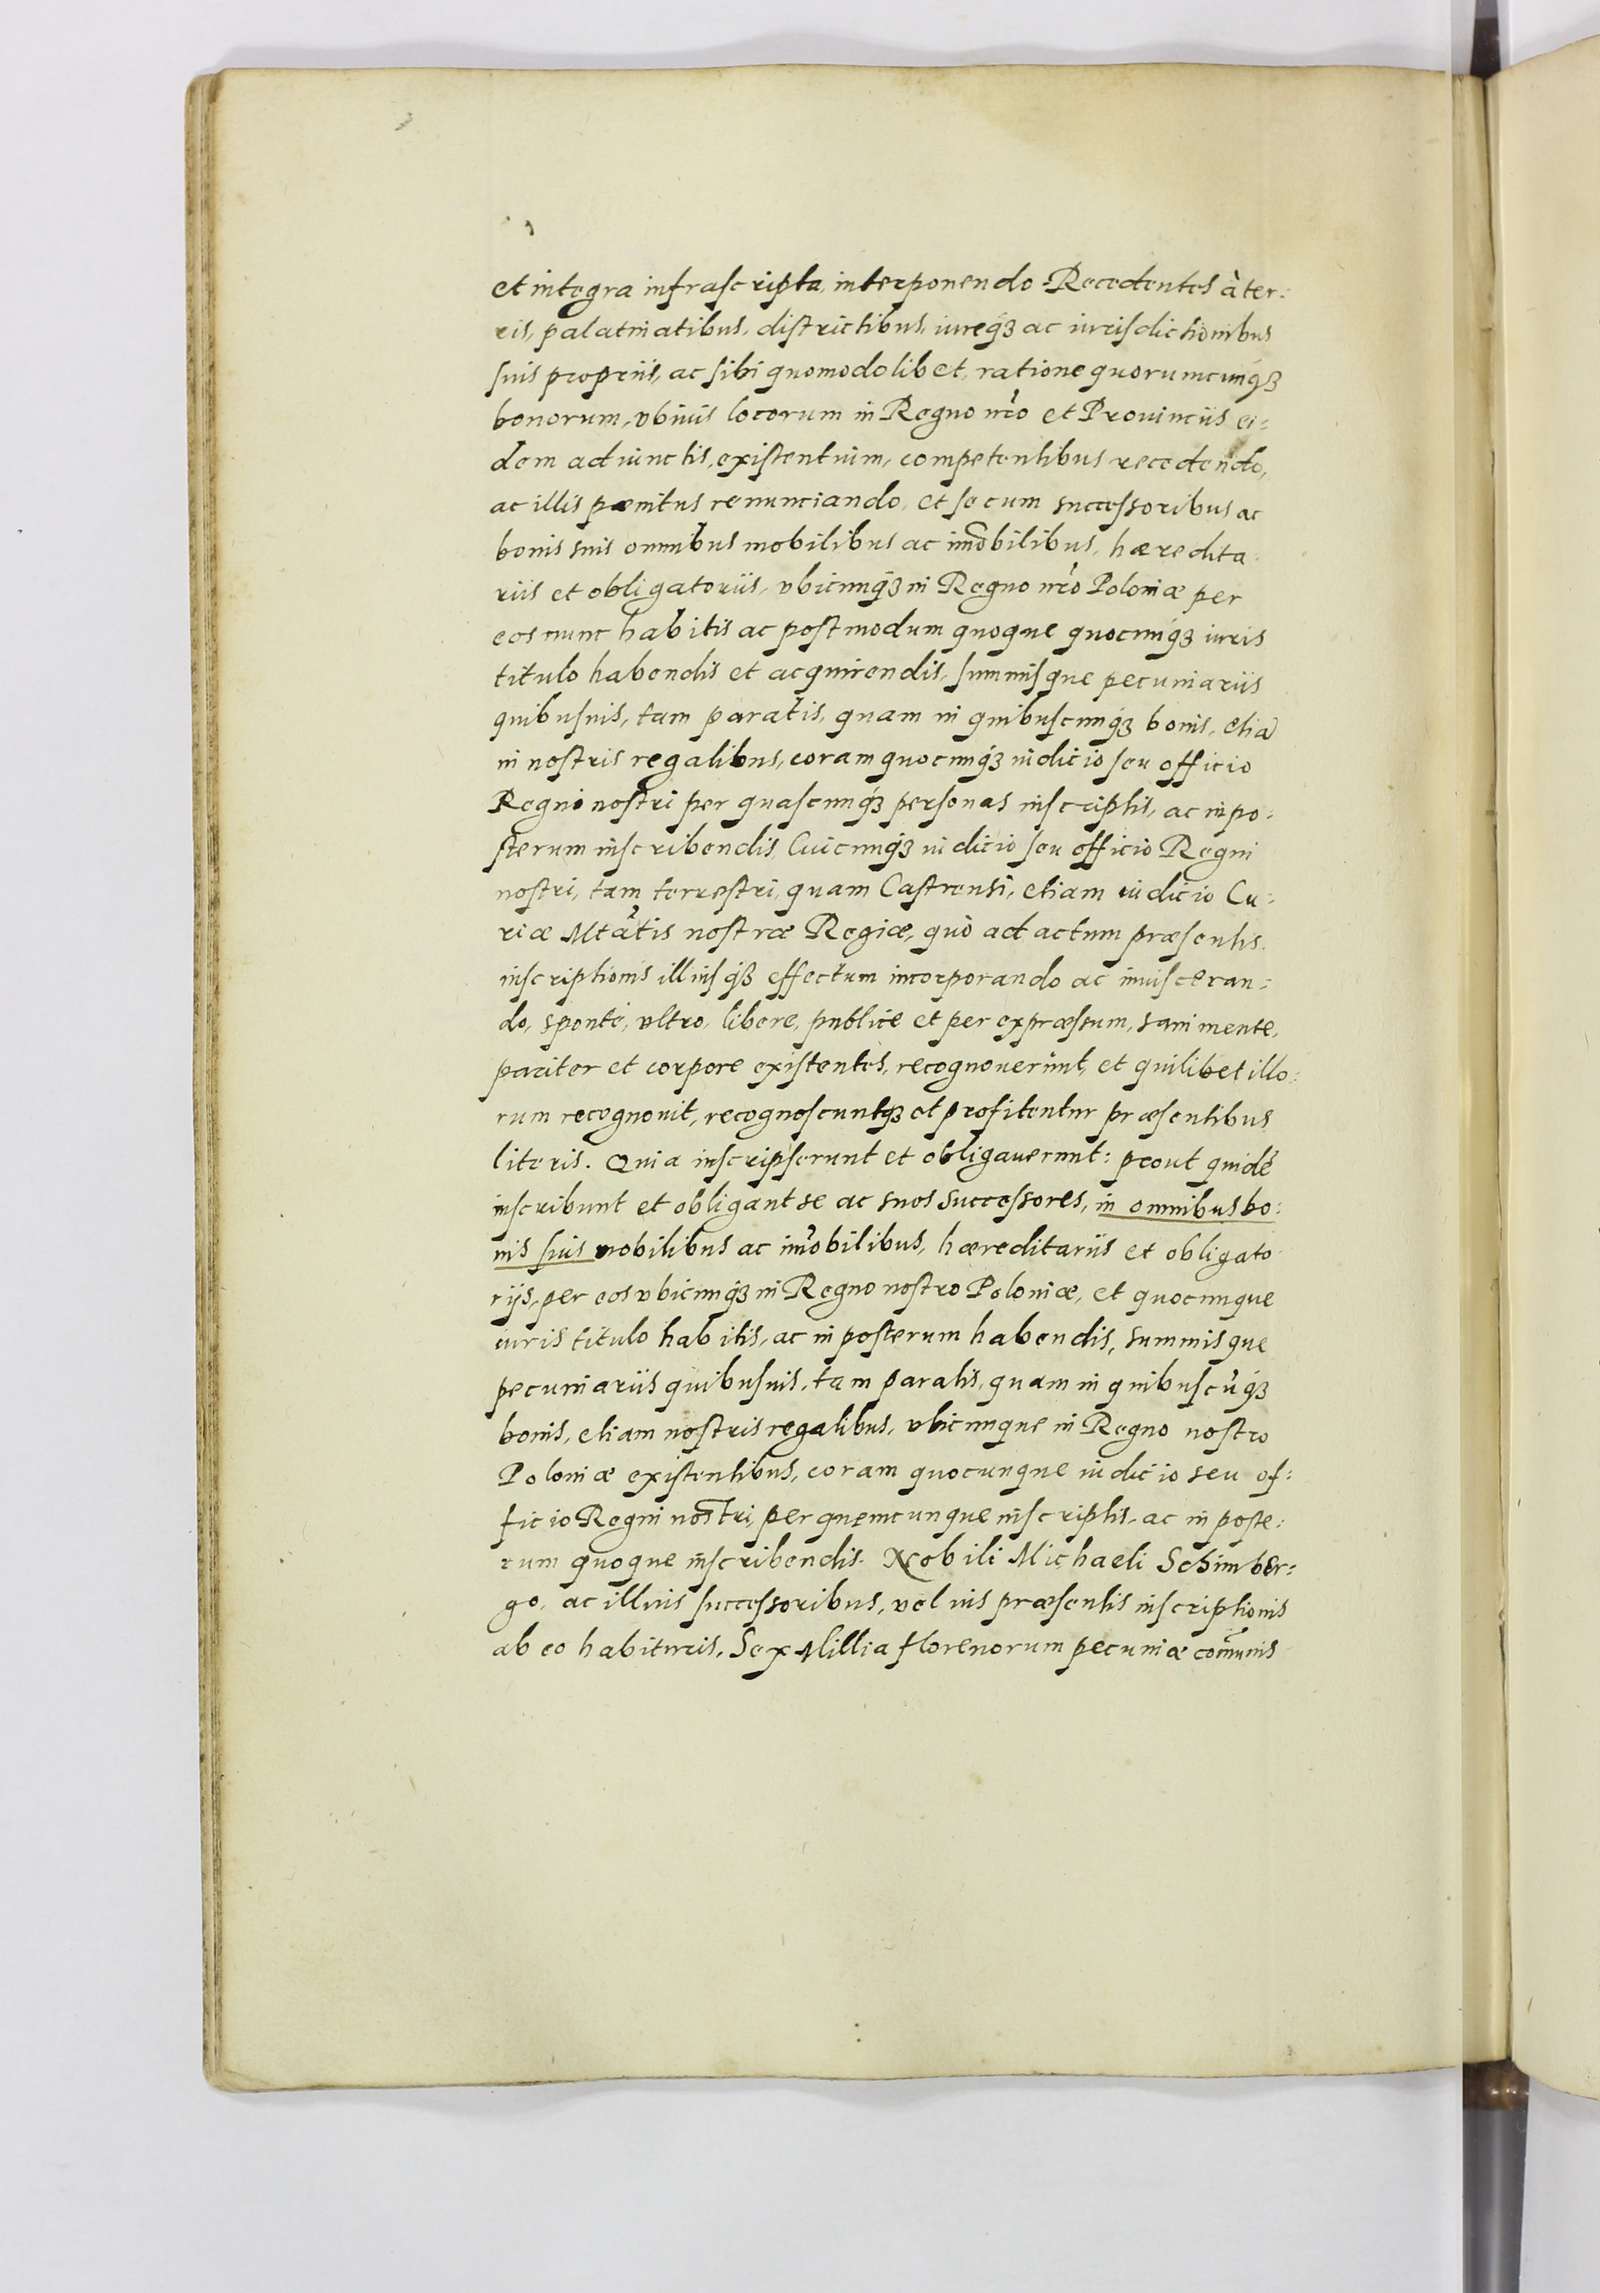 et integra infrascripta, interponendo. Recedentes à ter:
ris, palatinatibus, districtibus, iureq́ꝫ ac iurisdictionibus
suis propriis, ac sibi quomodolibet, ratione quorumcunq́ꝫ
bonorum, vbiuis locorum in Regno nr̃o et Prouinciis ei:
dem adiunctis, existentium, competentibus recedendo,
ac illis pænitus renunciando, et se cum successoribus ac
bonis suis omnibus mobilibus ac im̃obilibus, hæredita
riis et obligatoriis, vbicunq́ꝫ in Regno nr̃o Poloniæ per
eos nunc habitis ac postmodum quoque quocunq́ꝫ iuris
titulo habendis et acquirendis, summisque pecuniariis
quibusuis, tam paratis, quam in quibuscunq́ꝫ bonis, etiã
in nostris regalibus, coram quocunq́ꝫ iudicio seu officio
Regni nostri per quascunq́ꝫ personas inscriptis, ac in po:
sterum inscribendis, Cuicunq́ꝫ iudicio seu officio Regni
nostri, tam terrestri, quam Castrensi, etiam iudicio Cu:
riæ Mtãtis nostræ Regiæ, quò ad actum præsentis
inscriptionis illiusq́ꝫ effectum incorporando ac inuisceran:
do, sponte, vltro, libere, publice et per expræssum, sani mente,
pariter et corpore existentes, recognouerunt, et quilibet illo:
rum recognouit, recognoscuntqꝫ et profitentur præsentibus
literis. Quia inscripserunt et obligauerunt: prout quidẽ
inscribunt et obligant se ac suos successores, in omnibus bo:
nis suis mobilibus ac im̃obilibus, hæreditariis et obligato
rijs, per eos vbicunq́ꝫ in Regno nostro Poloniæ, et quocunque
iuris titulo habitis, ac in posterum habendis, summisque
pecuniariis quibusuis, tam paratis, quam in quibuscũq́ꝫ
bonis, etiam nostris regalibus, vbicunque in Regno nostro
Poloniæ existentibus, coram quocunque iudicio seu of:
ficio Regni nostri, per quemcunque inscriptis, ac in poste:
rum quoque inscribendis. Nobili Michaeli Schimber:
go, ac illius successoribus, vel ius præsentis inscriptionis
ab eo habituris, Sex Millia florenorum pecuniæ com̃unis